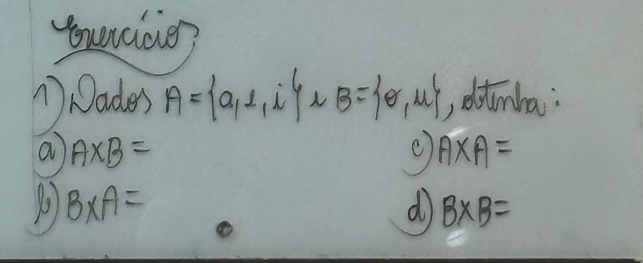 Exercícios
1) Dados A = {a, e, i} e B = {o, u}, obtenha:
a) A×B =
c) A×A =
b) B×A =
d) B×B =